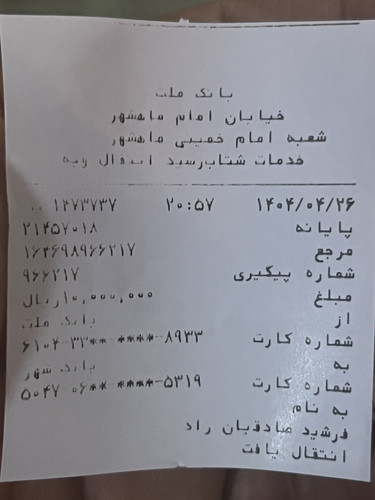 بانک ملت
خیابان امام ماهشهر
شعبه امام خمینی ماهشهر
خدمات شتاب‌رسید انتقال وجه
۱۴۰۴/۰۴/۲۶ ۲۰:۵۷ ۱۴۷۳۷۳۷
پایانه
۲۱۴۵۷۰۱۸
مرجع
۱۶۴۶۹۸۹۶۶۲۱۷
شماره پیگیری
۹۶۶۲۱۷
مبلغ
۱۰,۰۰۰,۰۰۰ریال
از
بانک ملت
شماره کارت
۶۱۰۴-۳۳**-****-۸۹۳۳
به
بانک شهر
شماره کارت
۵۰۴۷-۰۶**-****-۵۳۱۹
به نام
فرشید صادقیان راد
انتقال یافت